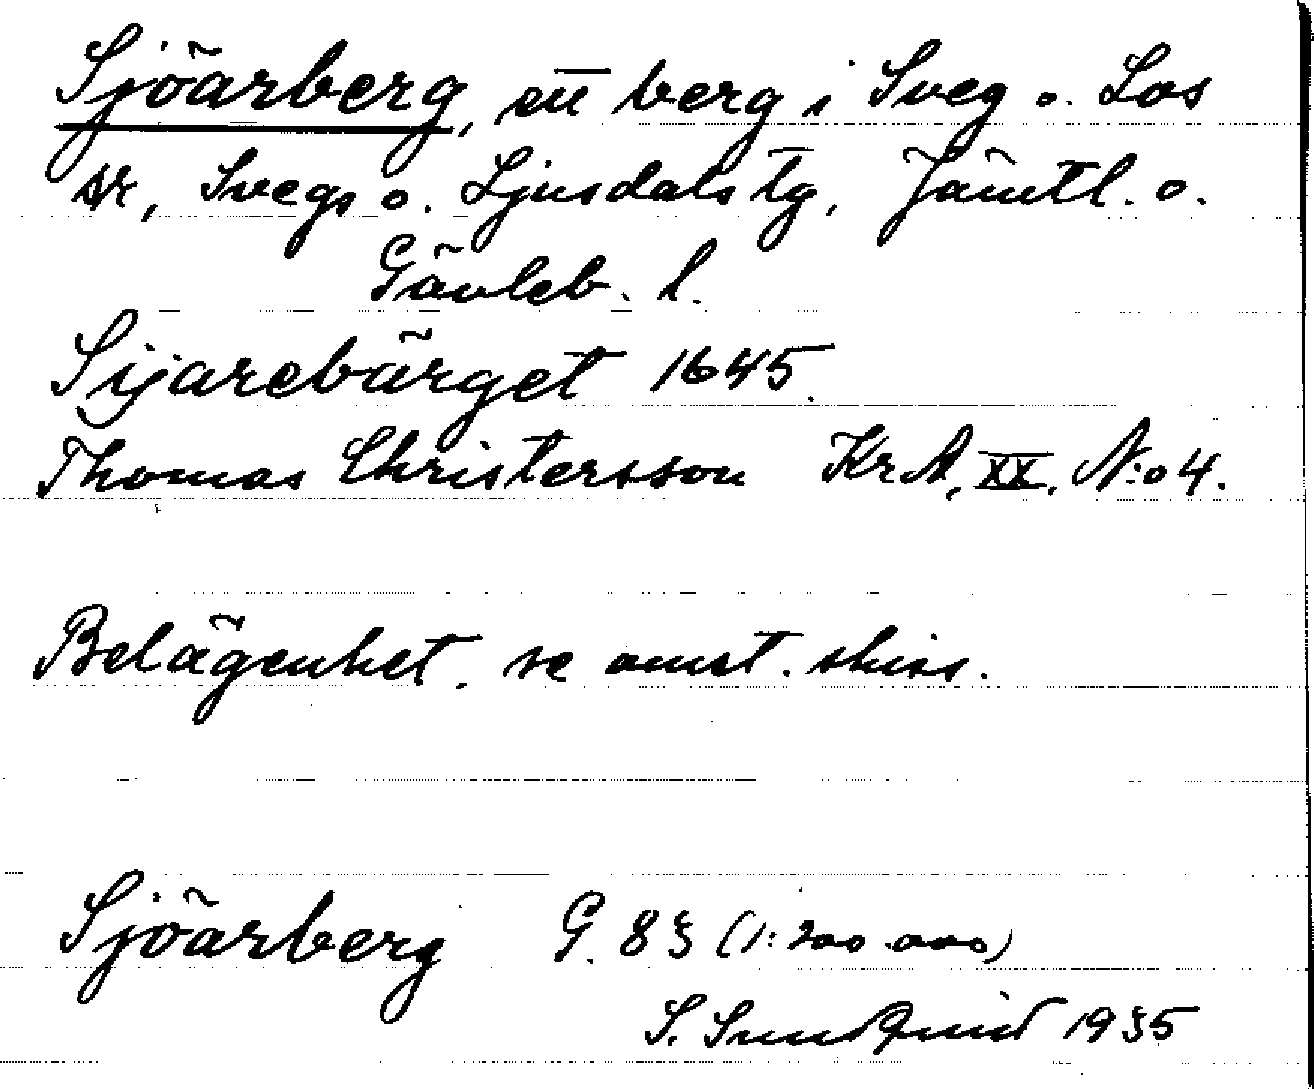 Sjöarberg, ett berg i Sveg o. Los
sr, Svegs o. Ljusdals tg, Jämtl. o.
Gävleb. l.
Sijarebärget 1645.
Thomas Christersson KrA, XX, N:o 4.
Belägenhet, se omst. skiss.
Sjöarberg G. 83 (1:200.000)
S. Sundquist 1935